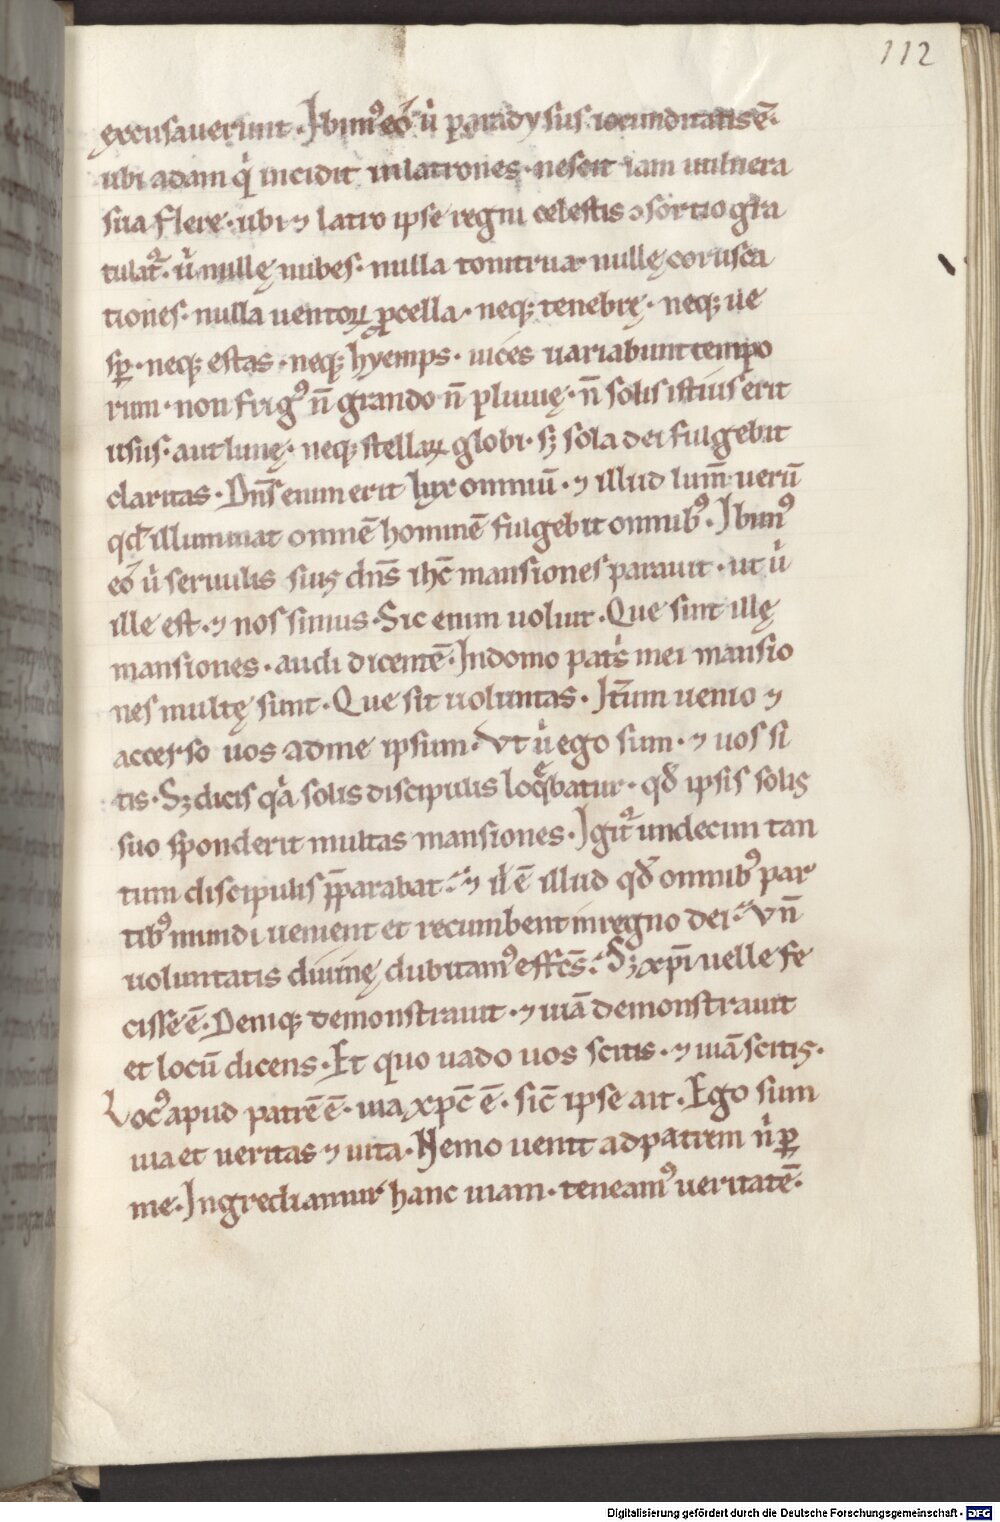 112
excusauerunt · Ibim᷒ eo᷒ u̓ paradysus iocunditatis ē ·
ubi adam q̓ incidit in latrones · nescit iam uulnera
sua flere · ubi ⁊ latro ipse regni celestis ↄsortio gra
tulat᷑ · u̓ nullę nubes · nulla tonitrua · nullę corusca
tiones · nulla uentoꝝ ꝓcella · neq; tenebrę · neq; ue
sꝑ · neq; estas · neq; hyemps · uices uariabunt tempo
rum · non frig᷒ n̄ grando n̄ pluuię · n̄ solis istius erit
usus · aut lunę · neq; stellaꝝ globi · sꝫ sola dei fulgebit
claritas · Dn̄s enim erit lux omniū · ⁊ illud lum̄ uerū
qđ illuminat omnē hominē fulgebit omnib᷒ · Ibim᷒
eo᷒ u̓ seruulis suis dn̄s ih̄c mansiones parauit · ut u̓
ille est · ⁊ nos simus · Sic enim uoluit · Que sint illę
mansiones · audi dicentē · In domo pat̓s mei mansio
nes multę sunt · Que sit uoluntas · It̄um uenio ⁊
accerso uos ad me ipsum · Vt u̓ ego sum · ⁊ uos si
tis · Sꝫ dicis q̓a solis discipulis loq̄batur · qđ ipsis solis
suo sponderit multas mansiones · Igit᷑ undecim tan
tum discipulis p̄parabat · ⁊ ił ē illud qđ omnib᷒ par
tib᷒ mundi uenient et recumbent in regno dei · Vn̄
uoluntatis diuinę dubitam᷒ effc̄s · Sꝫ xp̄i uelle fe
cisse ē · Deniq; demonstrauit · ⁊ uiā demonstrauit
et locū dicens · Et quo uado uos scitis · ⁊ uiā scitis ·
Loc᷒ apud patrē ē · uia xp̄c ē · sic̄ ipse ait · Ego sum
uia et ueritas ⁊ uita · Nemo uenit ad patrem n̓ ꝑ
me · Ingrediamur hanc uiam · teneam᷒ ueritatē ·
Digitalisierung gefördert durch die Deutsche Forschungsgemeinschaft - DFG